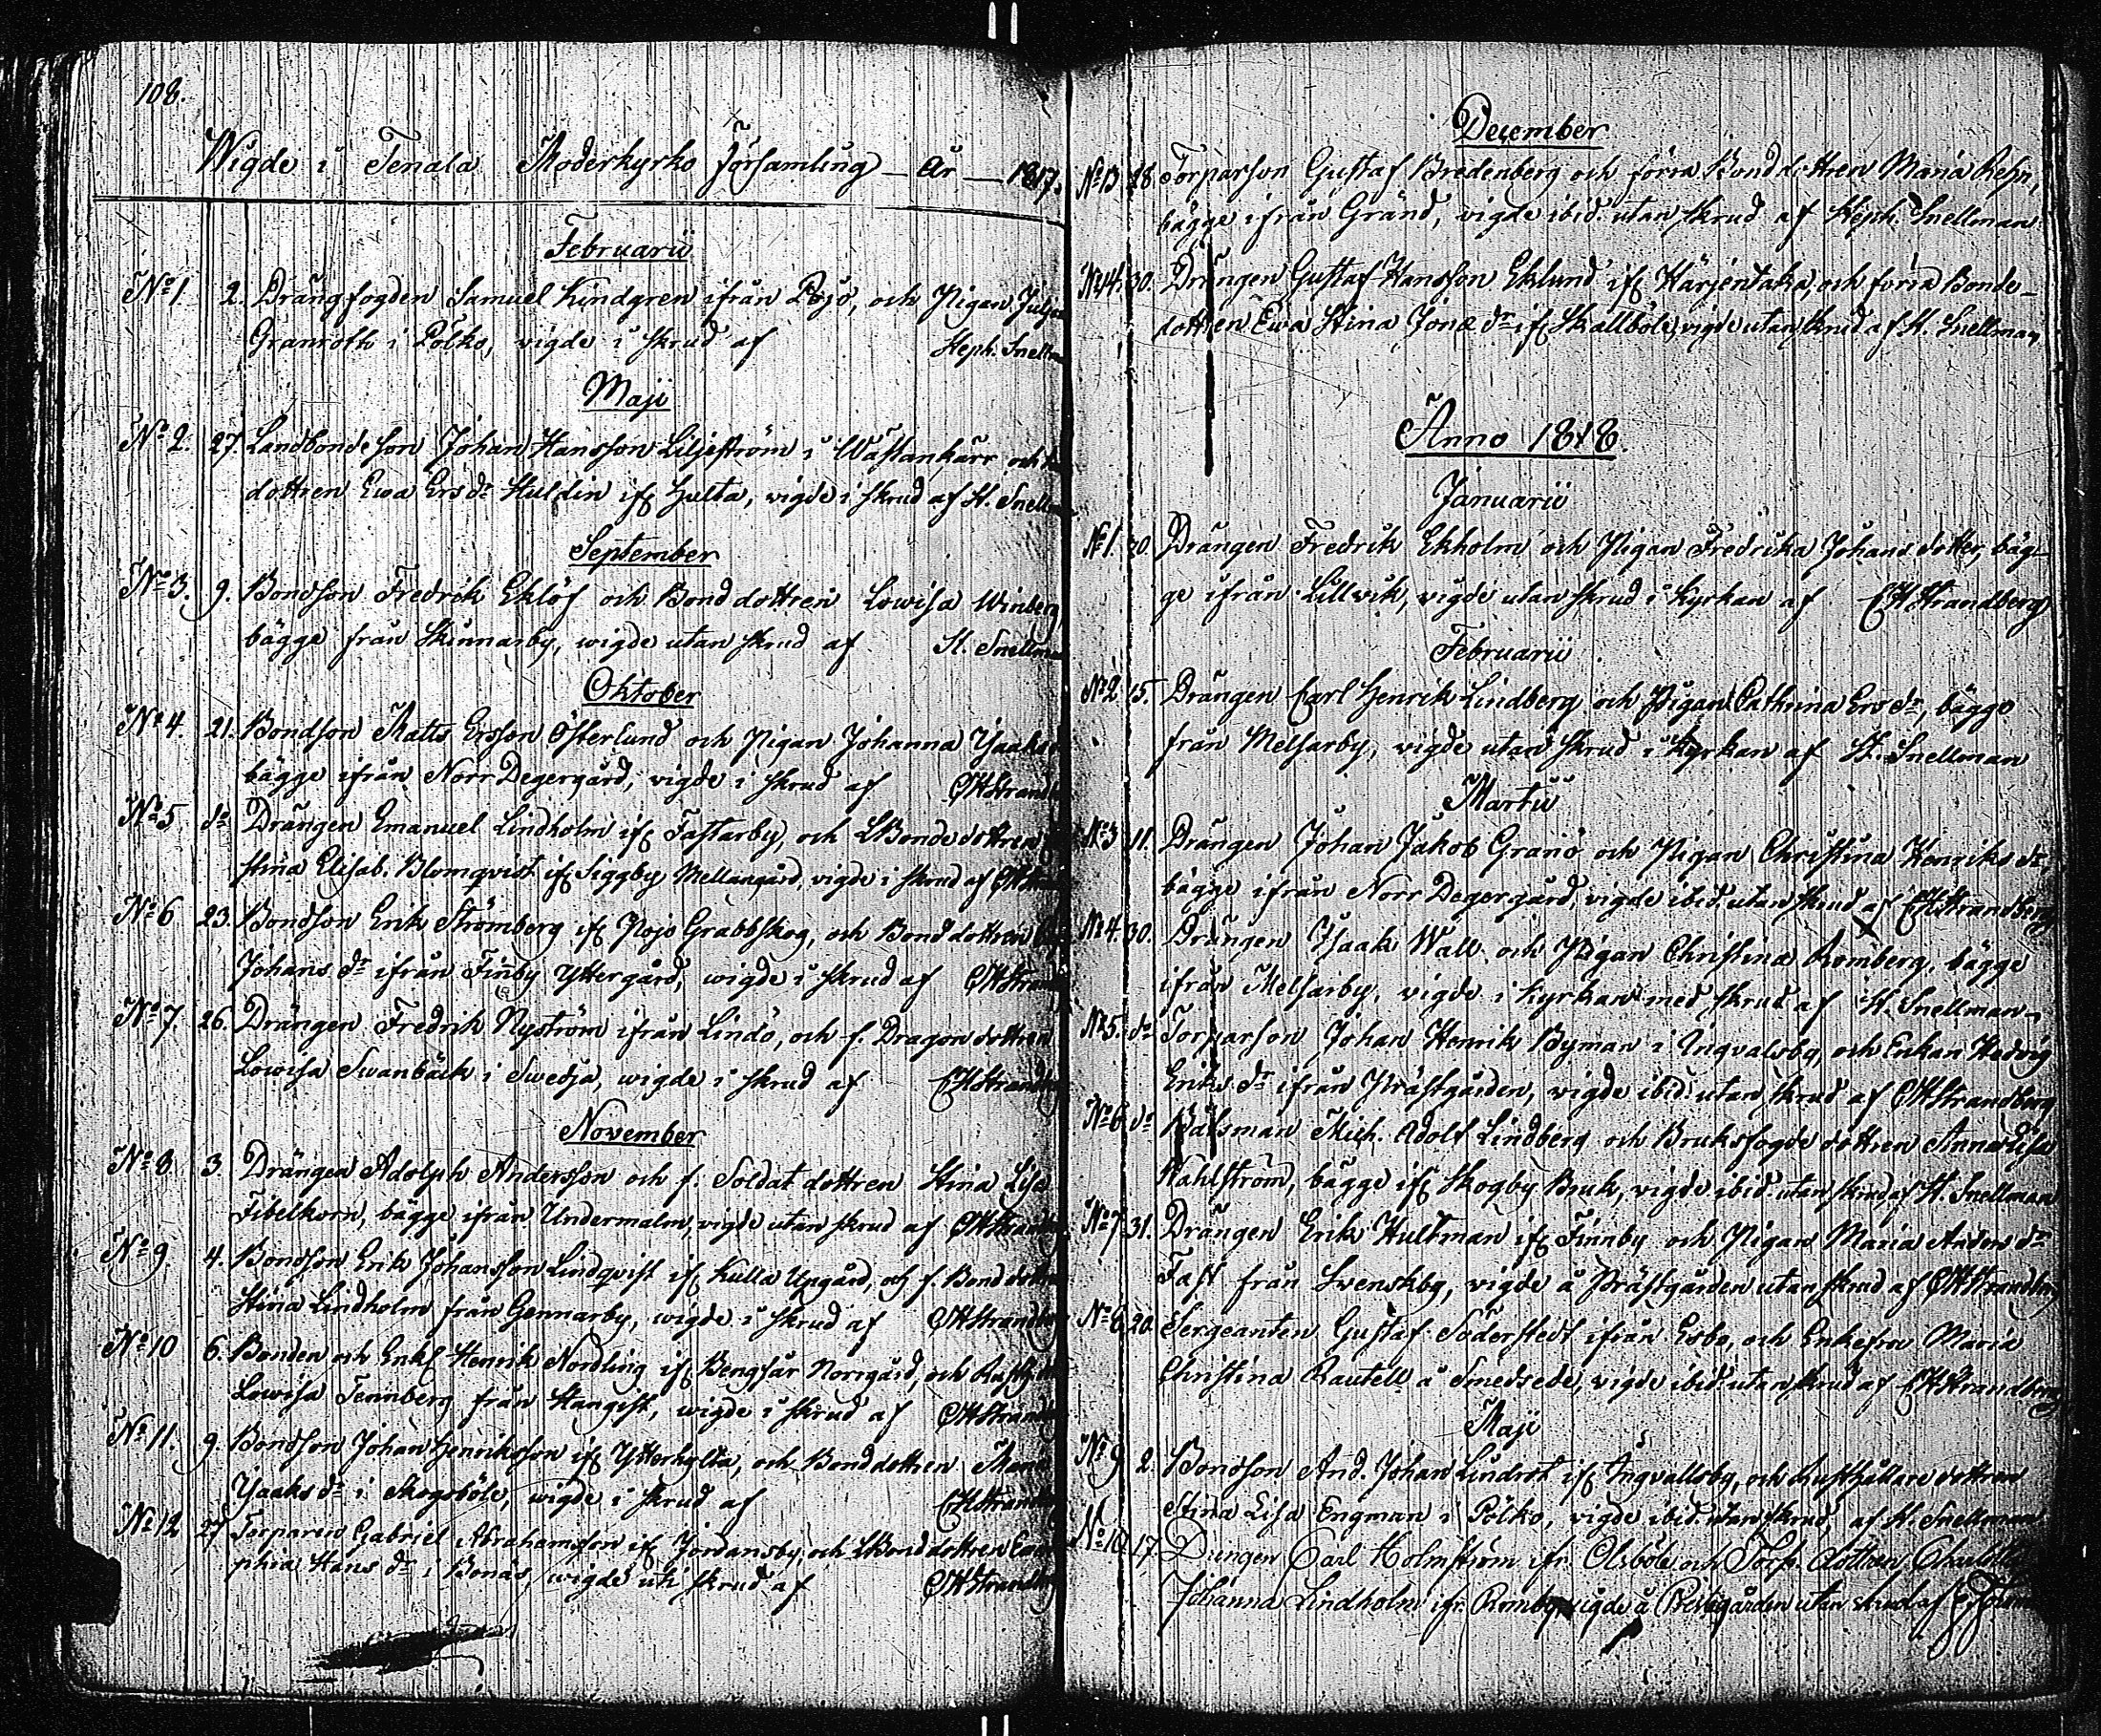 108.
Wigde i Tenala Moderkyrko församling År 1817.
Februarii
No 1. 2. Drängfogden Samuel Kindgren ifrån Pojo, och Pigan
Granroth i Pölkö, vigde i skrud af Steph. Snellm
Maji
No 2. 27. Landbonde son Johan Hansson Liljeström i Wästankärr och
dottren Ewa Ers dr Huldin ifr Hulta, vigde i skrud af St. Snellm
September
No 3. 9. Bondson Fredrik Eklöf och Bonddottren Lowisa Winberg
bägge från Skinnarby, wigde utan skrud af St. Snellman
Oktober
No 4. 21. Bondson Matts Ersson Österlund och Pigan Johanna Isaaks
bägge ifrån Norr Degergård, vigde i skrud af CHStrandb
No 5 do Drängen Emanuel Lindholm ifr Fastarby, och LBondedottren
Stina Elisab. Blomqvist ifr Siggby Mellangård, vigde i skrud af
No 6 23. Bondson Erik Strömberg ifr Pojo Grabbskog, och Bonddottren
Johans dr ifrån Finby Yttergård, wigde i skrud af CHStrandb
No 7. 26. Drängen Fredrik Nyström ifrån Lindö, och f. Dragon dottren
Lowisa Swanbäck i Swedja, wigde i skrud af CHStrandb
November
No 8 3. Drängen Adolph Andersson och f. Soldat dottren Stina Lisa
Fibelkorn, bägge ifrån Undermalm, vigde utan skrud af CHStrandb
No 9. 4. Bondson Erik Johansson Lindqvist ifr Kulla Uppgård, och f. Bonddottren
Stina Lindholm från Gennarby, wigde i skrud af CHStrandb
No 10 6. Bonden och Enkl Henrik Nordling ifr Bengsår Norrgård, och
Lowisa Tennberg från Hangist, wigde i skrud af CHStrandb
No 11. 9. Bondson Johan Henriksson ifr Ytterhylta, och Bonddottren Maria
Isaaks dr i Skogsböle, wigde i skrud af CHStrandb
No 12 27 Torparen Gabriel Abrahamsson ifr Jordansby, och LBonddottren
phia Hans dr i Bonäs, wigde uti skrud af CHStrandb
December
No 13 28 Torparson Gustaf Bredenberg och förra Bonddottren Maria Rehn,
bägge ifrån Gränd, vigde ibid. utan skrud af Steph. Snellman
No 14. 30. Drängen Gustaf Hansson Eklund ifr Härjentaka, och förra Bonde-
dottren Ewa Stina Jonæ dr ifr Skallböle, vigde utan skrud af St. Snellman
Anno 1818.
Januarii
No 1. 20. Drängen Fredrik Ekholm och Pigan Fredrika Johans dotter, bäg-
ge ifrån Lillvik, vigde utan skrud i kyrkan af CHStrandberg
Februarii
No 2 15. Drängen Carl Henrik Lindberg och Pigan Cathrina Ers dr, bägge
från Melsarby, vigde utan skrud i Kyrkan af St. Snellman
Martii
No 3 11. Drängen Johan Jakob Granö och Pigan Christina Henriks dr,
bägge ifrån Norr Degergård, vigde ibid. utan skrud af CHStrandberg
No 4. 30. Drängen Isaak Wall och Pigan Christina Romberg, bägge
ifrån Melsarby, vigde i Kyrkan med skrud af St. Snellman
No 5. do Torparson Johan Henrik Byman i Ingvalsby, och Enkan Hedvig
Eriks dr ifrån Prästgården, vigde ibid. utan skrud af CHStrandberg
No 6 do Båtsman Mich. Adolf Lindberg och Bruksfogde dottren Anna Lisa
Wahlström, bägge ifr Skogby Bruk, vigde ibid. utan skrud af St. Snellman
No 7 31. Drängen Erik Hultman ifr Finnby och Pigan Maria Anders dr
Fast från Svenskby, vigde å Prästgården utan skrud af CHStrandberg
No 8 20. Sergeanten Gustaf Söderstedt ifrån Esbo, och Enkefru Maria
Christina Rautell å Smedsede, vigde ibid. utan skrud af CHStrandberg
Maji
No 9 2. Bondson And. Johan Lindrot ifr Ingvallsby, och Rusthållare dottren
Stina Lisa Engman i Pölkö, vigde ibid utan skrud, af St. Snellman
No 10 17. Drengen Carl Holmström ifr. Olsböle och Torp. dottren Charlotta
Johanna Lindholm ifr. Romby vigde å Prestegården utan skrud af